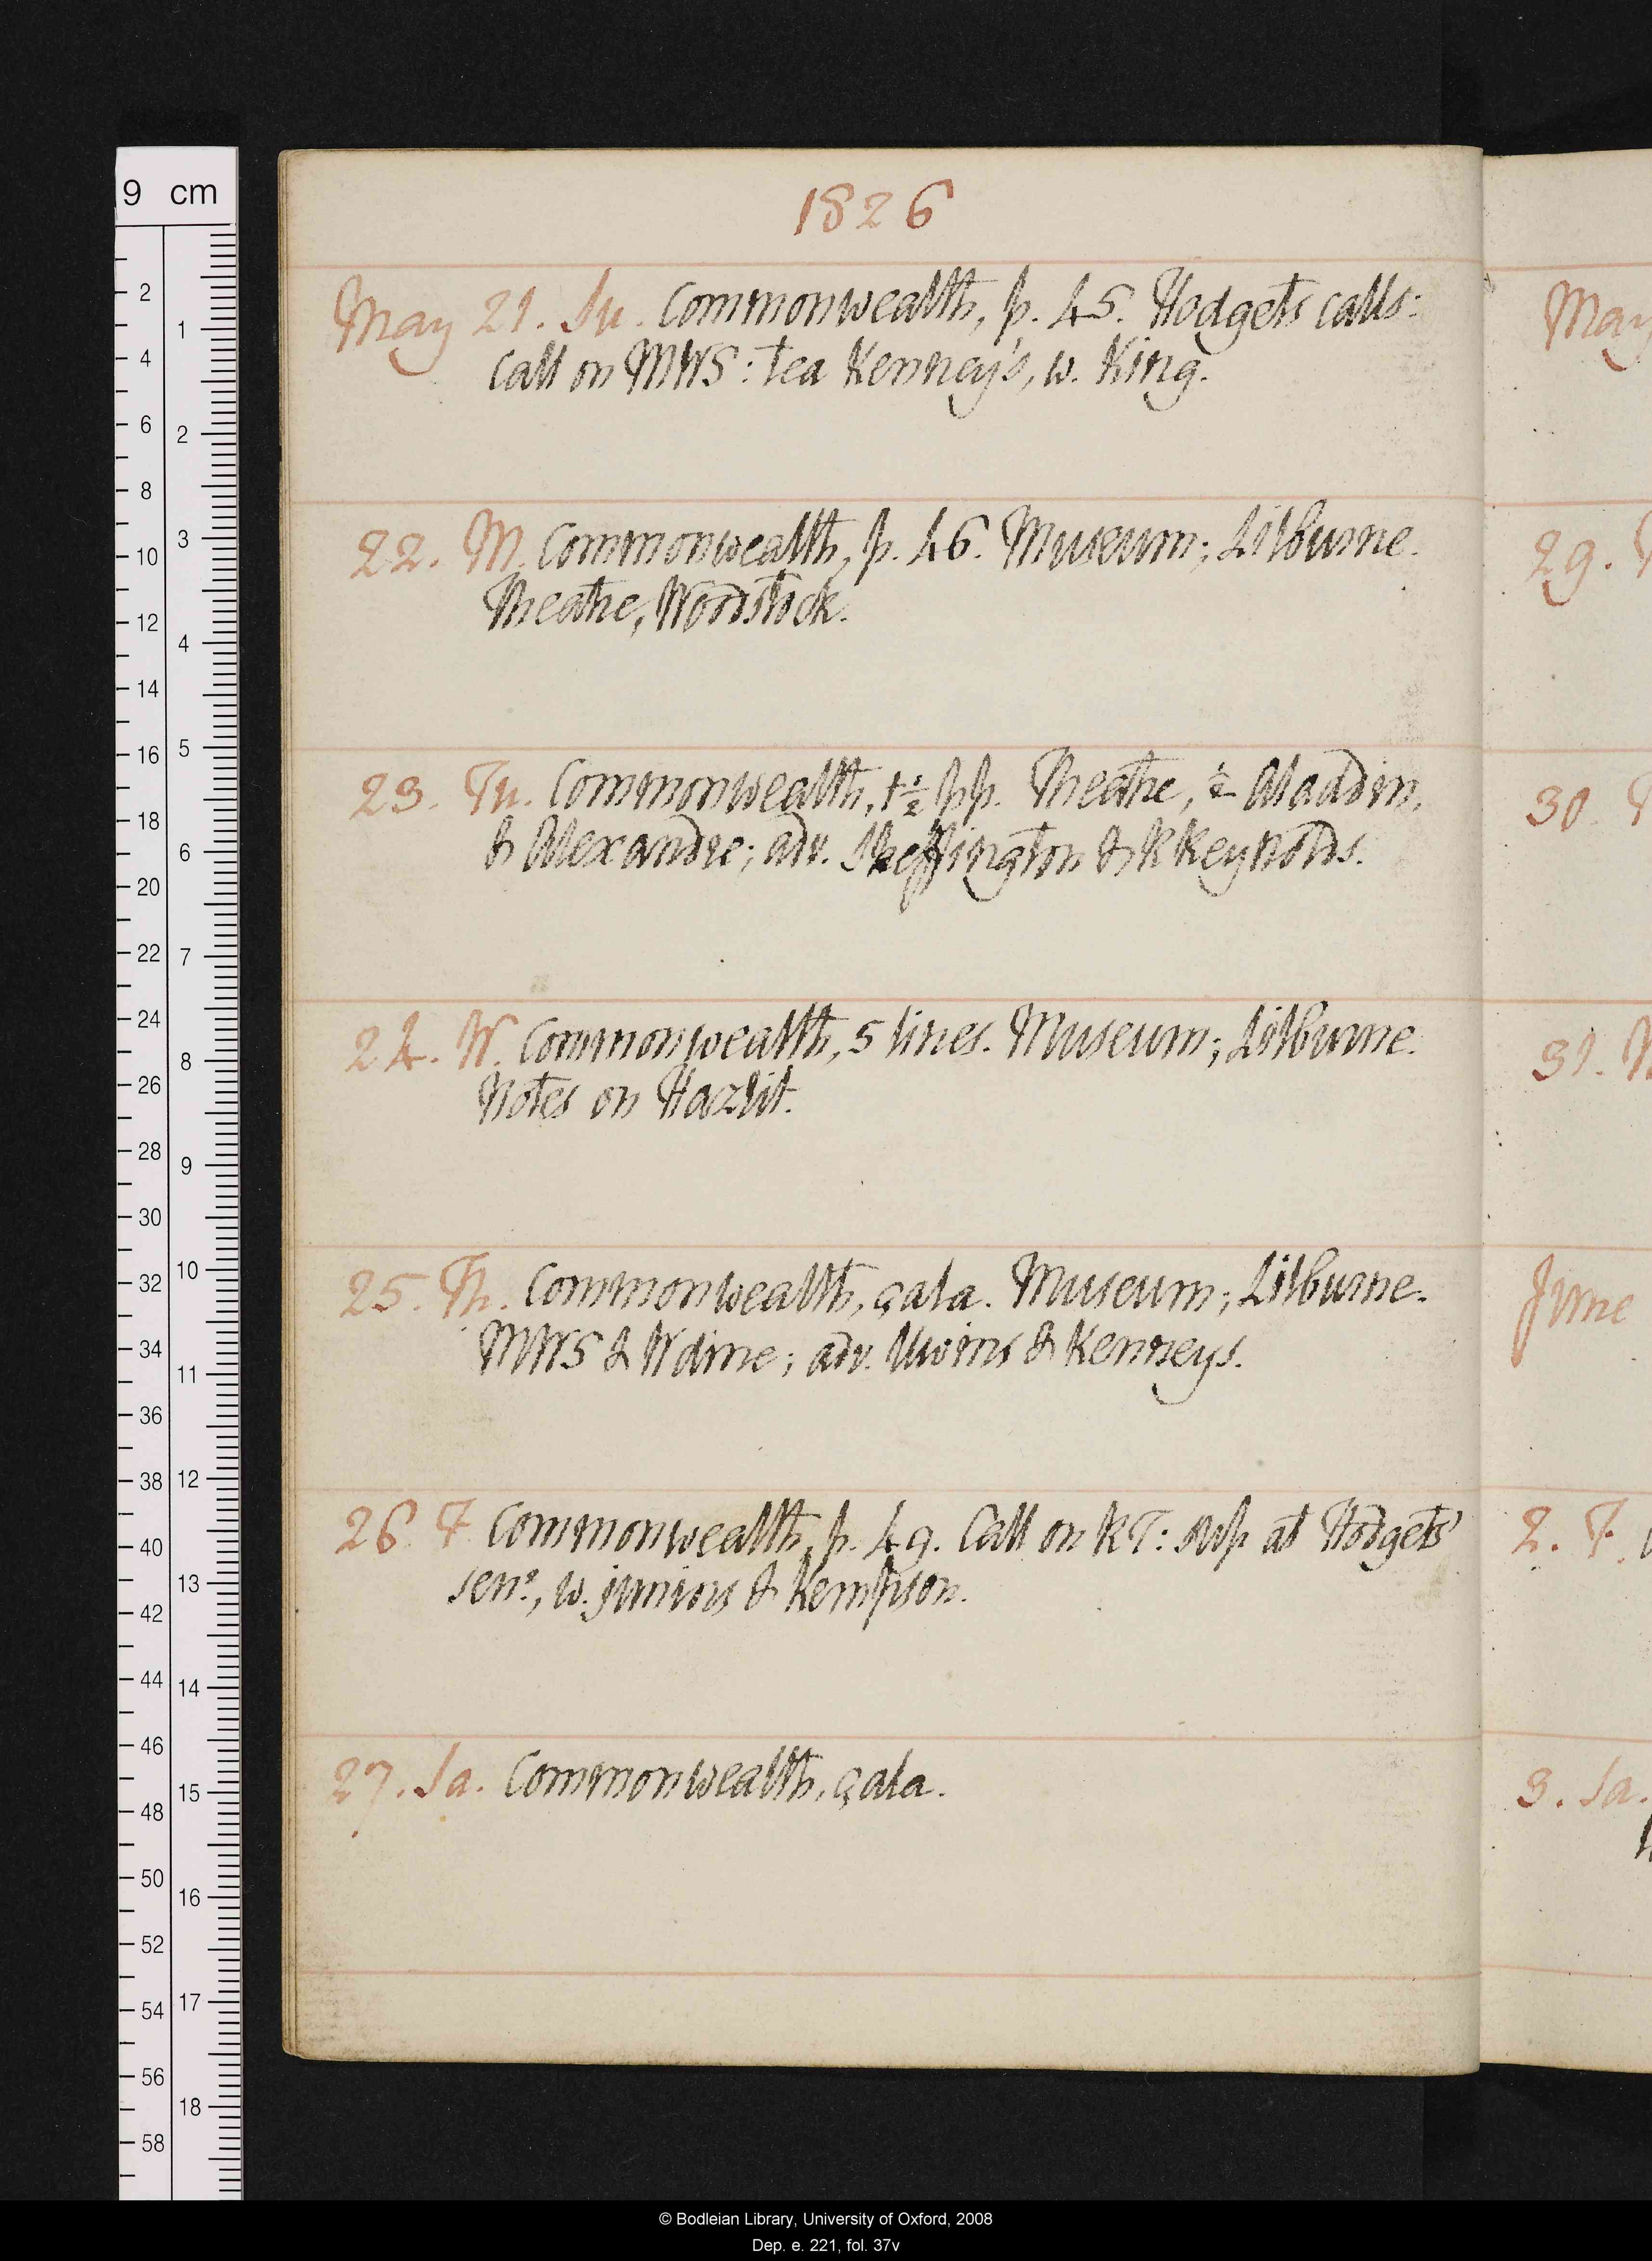 9 cm
1826
May 21. Su. Commonwealth, p. 45. Hodgets calls:
call on MWS: tea Kenney's, w. King.
22. M. Commonwealth, p. 46. Museum; Lilburne.
Theatre, Woodstock.
23. Tu. Commonwealth, 1½ pp. Theatre, ½ Aladdin,
& Alexandre; adv. Skeffington & R Reynolds.
24. W. Commonwealth, 5 lines. Museum; Lilburne.
Notes on Hazlit.
25. Th. Commonwealth, çala. Museum; Lilburne.
MWS & W dine; adv. Uwins & Kenneys.
26. F Commonwealth, p. 49. Call on RT: sup at Hodgets'
senr, w. juniors & Kempson.
27. Sa. Commonwealth, çala.
May
29.
30
31.
June
2. F.
3. Sa.
2 4 6 8 10 12 14 16 18 20 22 24 26 28 30 32 34 36 38 40 42 44 46 48 50 52 54 56 58
1 2 3 4 5 6 7 8 9 10 11 12 13 14 15 16 17 18
© Bodleian Library, University of Oxford, 2008
Dep. e. 221, fol. 37v